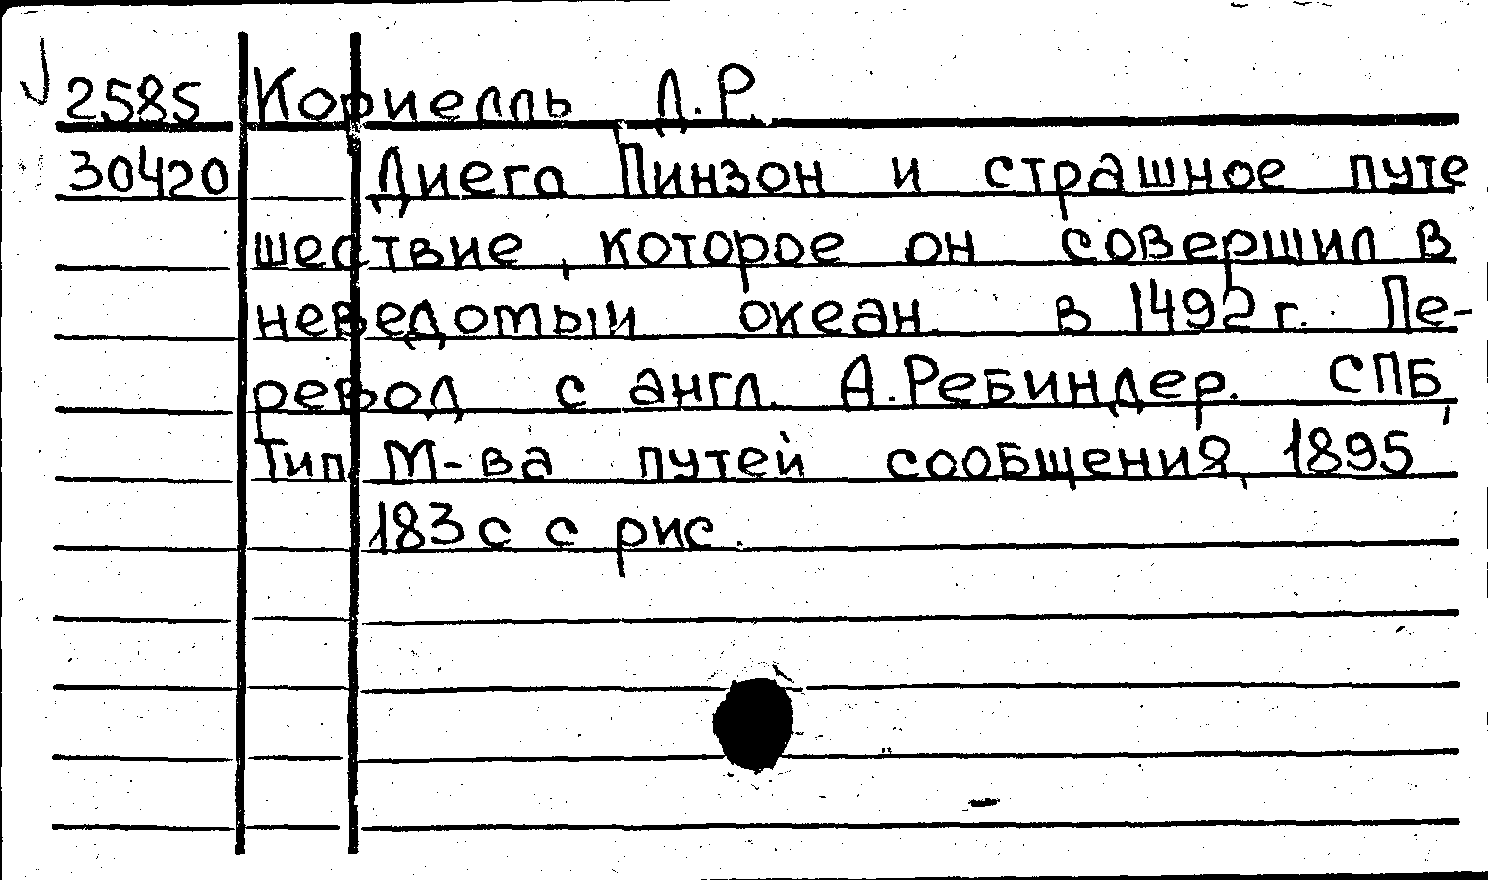 2585 Кориелль Д.Р.
30420 Диего Пинзон и страшное путе
шествие, которое он совершил в
неведомый океан в 1492 г. Пе-
ревод с англ. А.Ребиндер. СПБ,
Тип М-ва путей сообщения, 1895
183 с с рис.